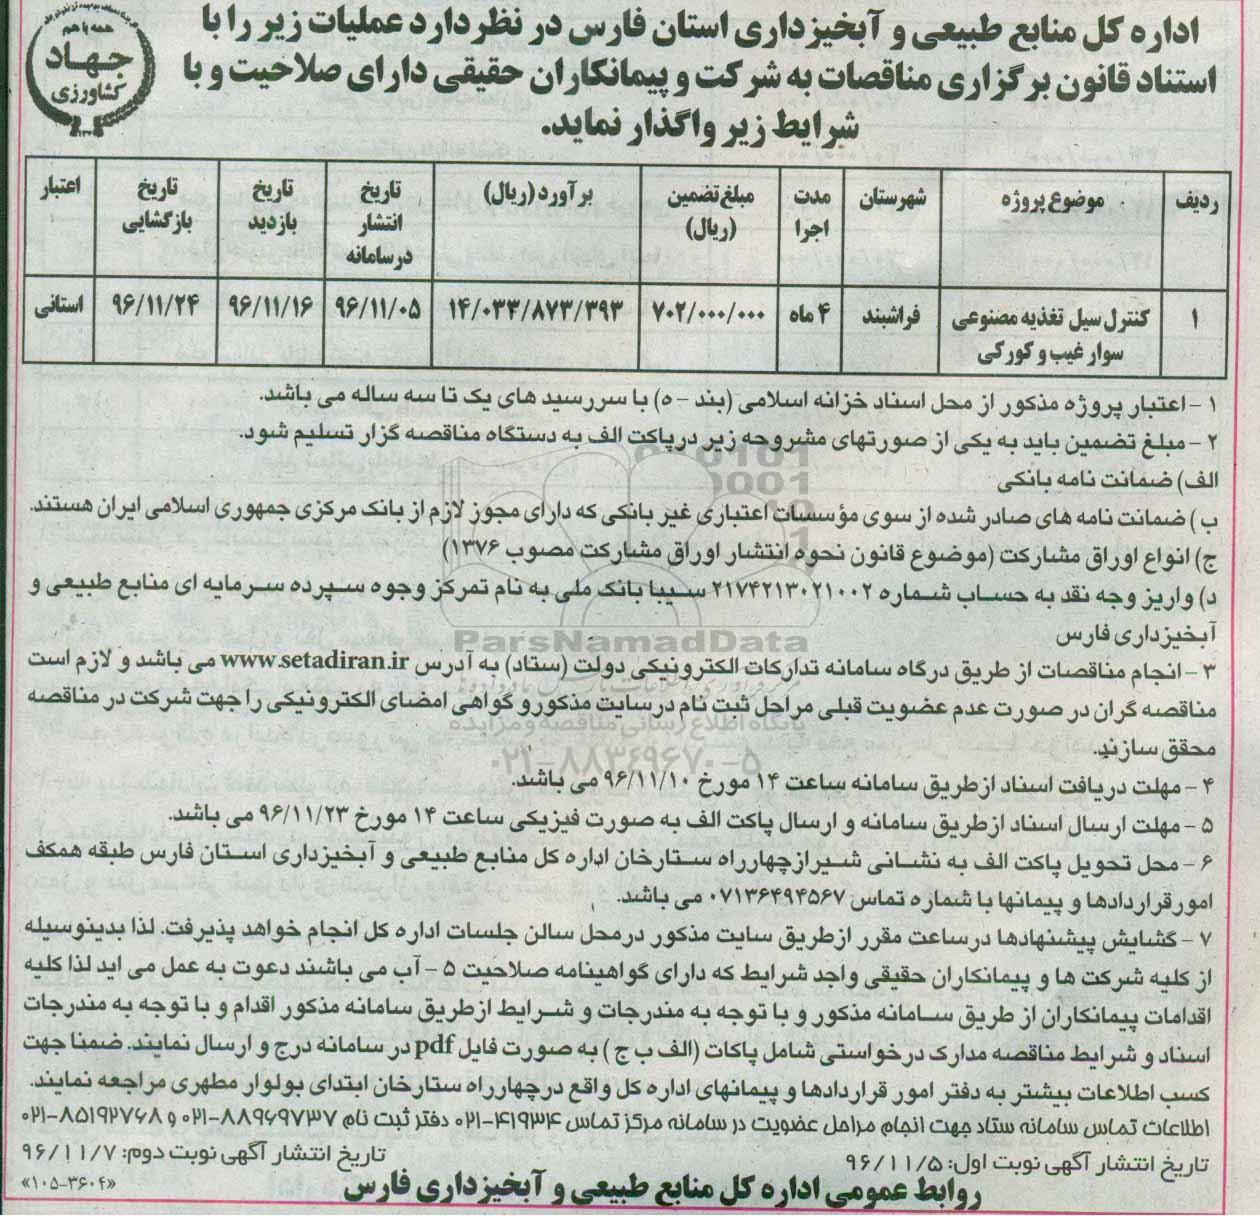 همه با هم
جهاد
کشاورزی
اداره کل منابع طبیعی و آبخیزداری استان فارس در نظر دارد عملیات زیر را با
استناد قانون برگزاری مناقصات به شرکت و پیمانکاران حقیقی دارای صلاحیت و با
شرایط زیر واگذار نماید.
ردیف | موضوع پروژه | شهرستان | مدت اجرا | مبلغ تضمین (ریال) | برآورد (ریال) | تاریخ انتشار درسامانه | تاریخ بازدید | تاریخ بازگشایی | اعتبار
۱ | کنترل سیل تغذیه مصنوعی سوار غیب و کورکی | فراشبند | ۴ ماه | ۷۰۲/۰۰۰/۰۰۰ | ۱۴/۰۳۳/۸۷۳/۳۹۳ | ۹۶/۱۱/۰۵ | ۹۶/۱۱/۱۶ | ۹۶/۱۱/۲۴ | استانی
۱ - اعتبار پروژه مذکور از محل اسناد خزانه اسلامی (بند - ه) با سررسید های یک تا سه ساله می باشد.
۲ - مبلغ تضمین باید به یکی از صورتهای مشروحه زیر درپاکت الف به دستگاه مناقصه گزار تسلیم شود.
الف) ضمانت نامه بانکی
ب) ضمانت نامه های صادر شده از سوی مؤسسات اعتباری غیر بانکی که دارای مجوز لازم از بانک مرکزی جمهوری اسلامی ایران هستند.
ج) انواع اوراق مشارکت (موضوع قانون نحوه انتشار اوراق مشارکت مصوب ۱۳۷۶)
د) واریز وجه نقد به حساب شماره ۲۱۷۴۲۱۳۰۲۱۰۰۲ سیبا بانک ملی به نام تمرکز وجوه سپرده سرمایه ای منابع طبیعی و
آبخیزداری فارس
ParsNamadData
۳ - انجام مناقصات از طریق درگاه سامانه تدارکات الکترونیکی دولت (ستاد) به آدرس www.setadiran.ir می باشد و لازم است
مناقصه گران در صورت عدم عضویت قبلی مراحل ثبت نام درسایت مذکورو گواهی امضای الکترونیکی را جهت شرکت در مناقصه
پایگاه اطلاع رسانی مناقصه و مزایده
محقق سازند.
۰۲۱-۸۸۳۴۹۶۷۰-۵
۴ - مهلت دریافت اسناد ازطریق سامانه ساعت ۱۴ مورخ ۹۶/۱۱/۱۰ می باشد.
۵ - مهلت ارسال اسناد ازطریق سامانه و ارسال پاکت الف به صورت فیزیکی ساعت ۱۴ مورخ ۹۶/۱۱/۲۳ می باشد.
۶ - محل تحویل پاکت الف به نشانی شیرازچهارراه ستارخان اداره کل منابع طبیعی و آبخیزداری استان فارس طبقه همکف
امورقراردادها و پیمانها با شماره تماس ۰۷۱۳۶۴۹۴۵۶۷ می باشد.
۷ - گشایش پیشنهادها درساعت مقرر ازطریق سایت مذکور درمحل سالن جلسات اداره کل انجام خواهد پذیرفت. لذا بدینوسیله
از کلیه شرکت ها و پیمانکاران حقیقی واجد شرایط که دارای گواهینامه صلاحیت ۵ - آب می باشند دعوت به عمل می اید لذا کلیه
اقدامات پیمانکاران از طریق سامانه مذکور و با توجه به مندرجات و شرایط ازطریق سامانه مذکور اقدام و با توجه به مندرجات
اسناد و شرایط مناقصه مدارک درخواستی شامل پاکات (الف ب ج) به صورت فایل pdf در سامانه درج و ارسال نمایند. ضمنا جهت
کسب اطلاعات بیشتر به دفتر امور قراردادها و پیمانهای اداره کل واقع درچهارراه ستارخان ابتدای بولوار مطهری مراجعه نمایند.
اطلاعات تماس سامانه ستاد جهت انجام مراحل عضویت در سامانه مرکز تماس ۴۱۹۳۴-۰۲۱ دفتر ثبت نام ۸۸۹۶۹۷۳۷-۰۲۱ و ۸۵۱۹۲۷۶۸-۰۲۱
تاریخ انتشار آگهی نوبت اول: ۹۶/۱۱/۵ تاریخ انتشار آگهی نوبت دوم: ۹۶/۱۱/۷
روابط عمومی اداره کل منابع طبیعی و آبخیزداری فارس
«۱۰۵-۳۶۰۴»